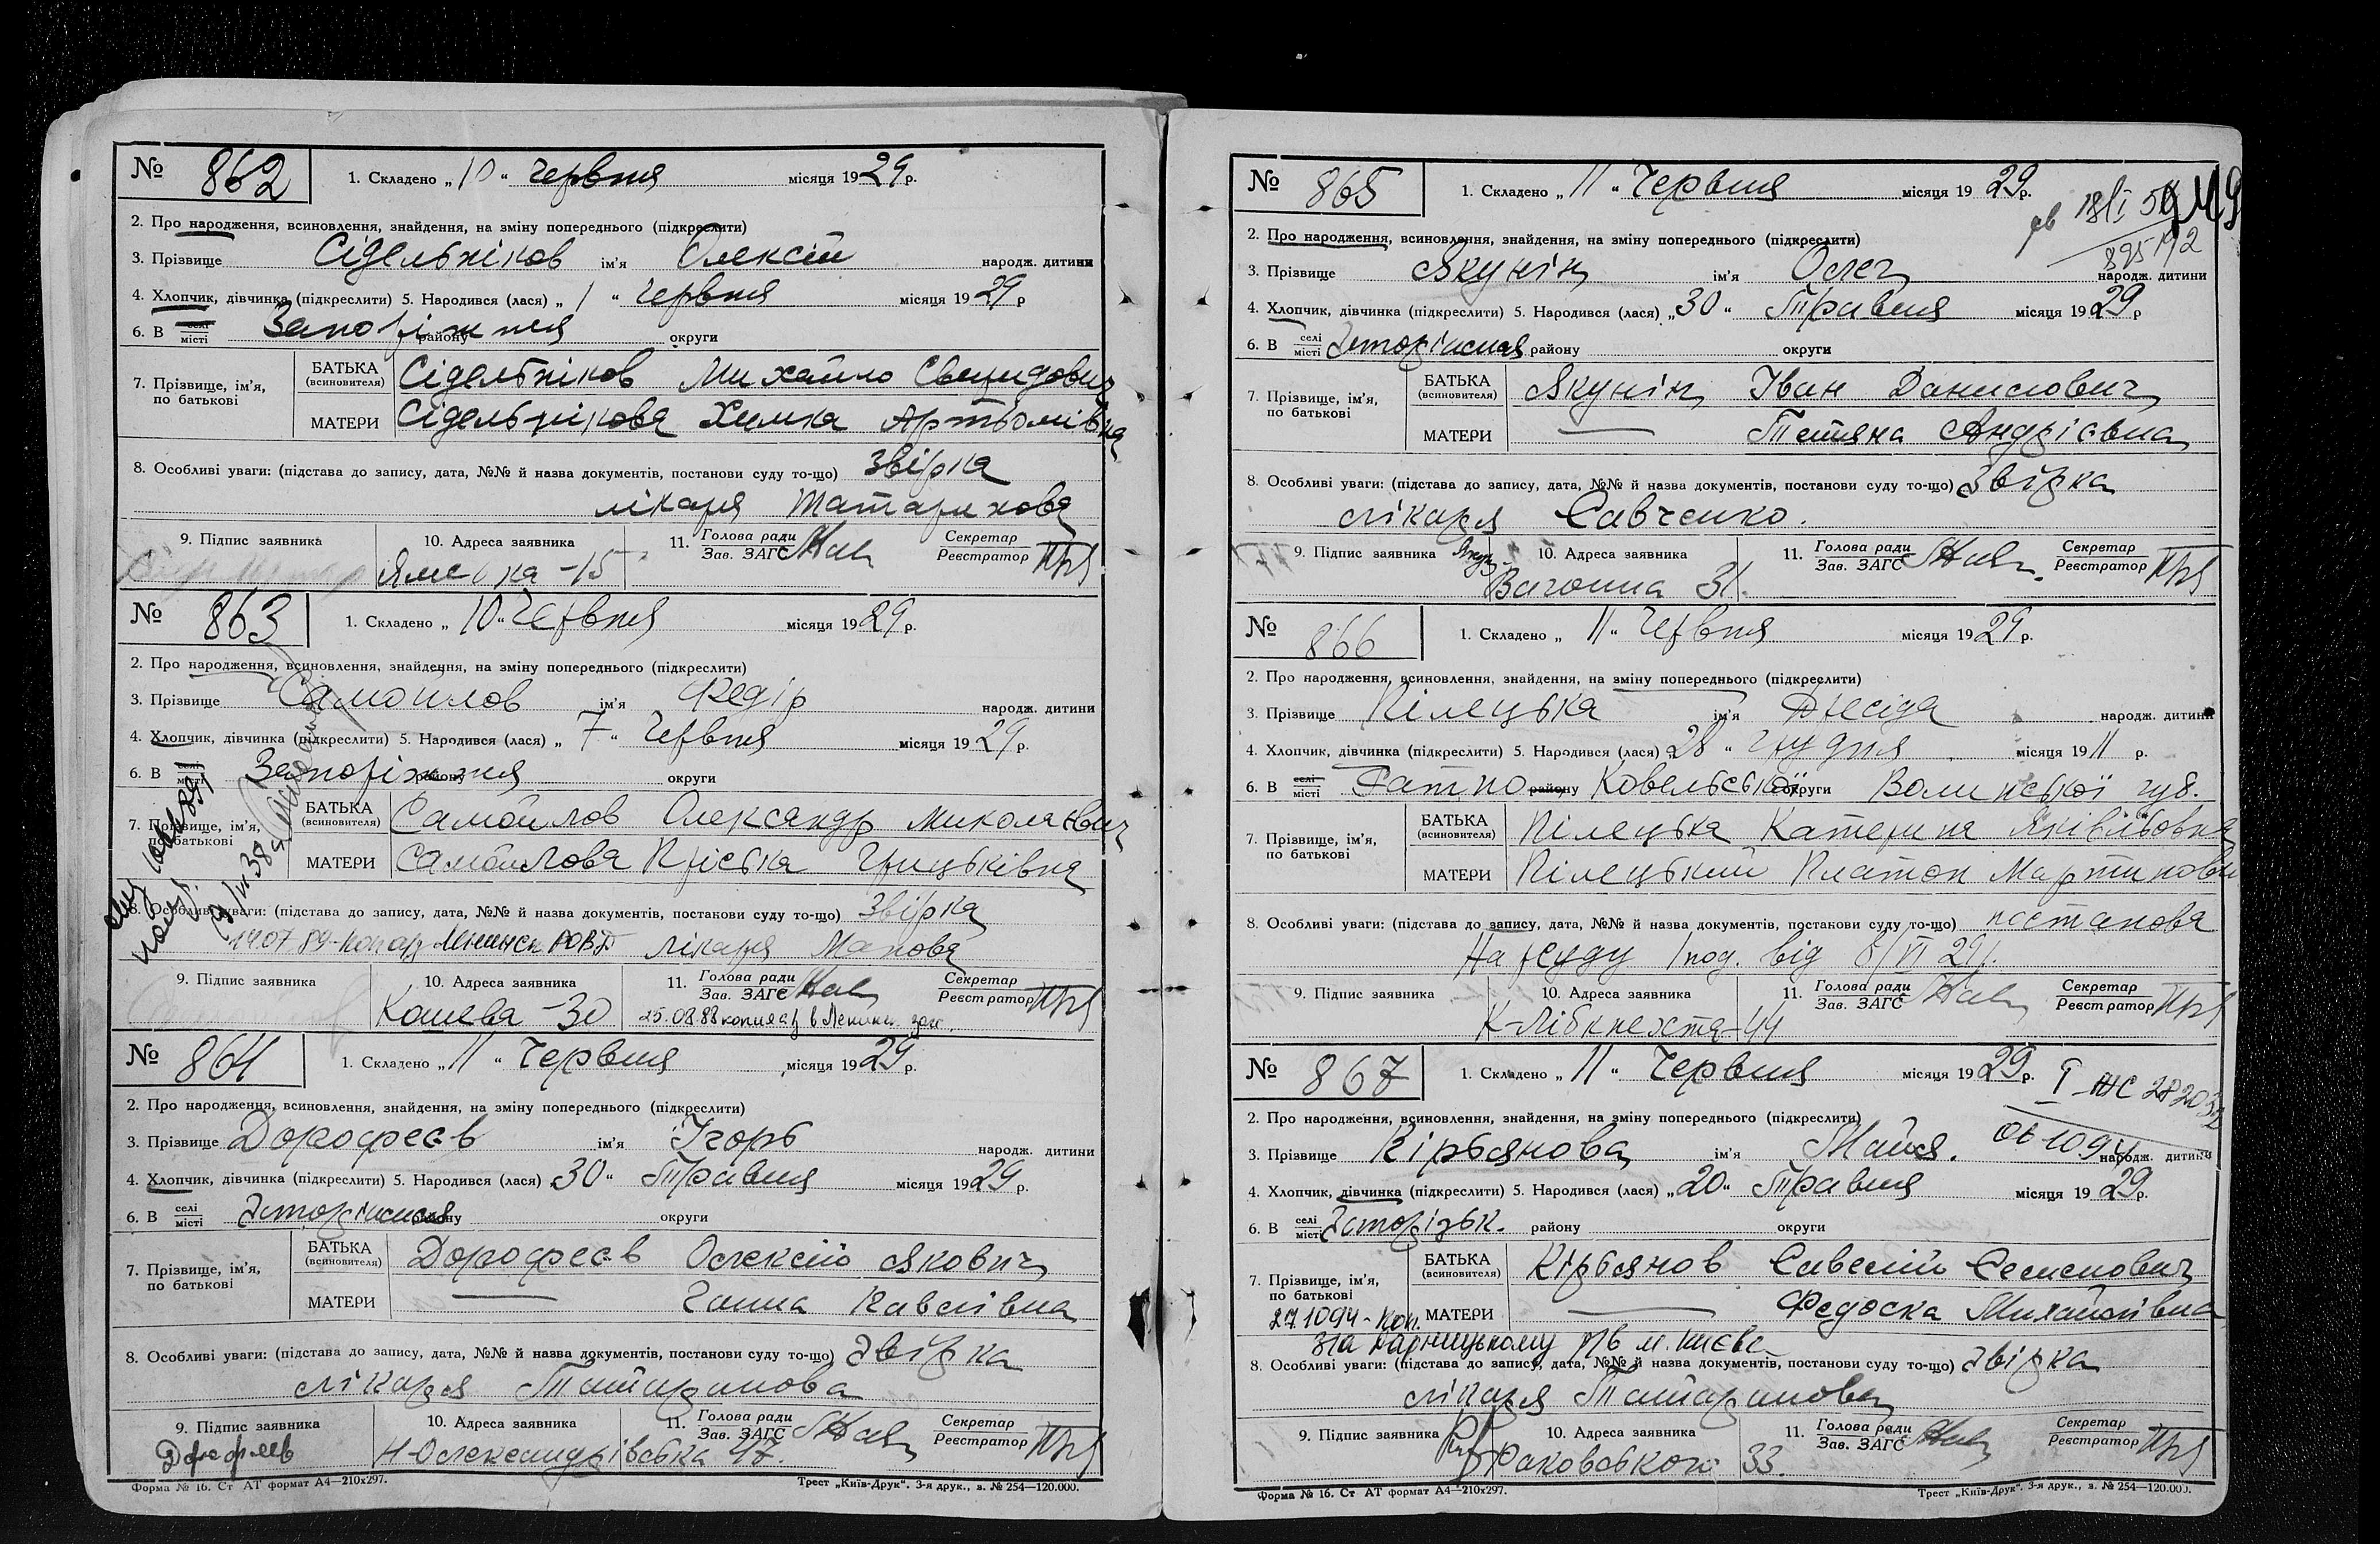 № 862 1. Складено „10“ Червня місяця 1929 р.
2. Про народження, всиновлення, знайдення, на зміну попереднього (підкреслити)
3. Прізвище Сідельніков ім'я Олексій народж. дитини
4. Хлопчик, дівчинка (підкреслити) 5. Народився (лася) „1“ Червня місяця 1929 р
6. В селі місті Запоріжжя району округи
7. Прізвище, ім'я, по батькові
БАТЬКА (всиновителя) Сідельніков Михайло
МАТЕРИ Сідельнікова Химка
8. Особливі уваги: (підстава до запису, дата, №№ й назва документів, постанови суду то-що) Звірка
лікаря Татаринова
9. Підпис заявника 10. Адреса заявника 11. Голова ради Зав. ЗАГС Секретар Реєстратор
Ямська -15
№ 863 1. Складено „10“ Червня місяця 1929 р.
2. Про народження, всиновлення, знайдення, на зміну попереднього (підкреслити)
3. Прізвище Самойлов ім'я Федір народж. дитини
4. Хлопчик, дівчинка (підкреслити) 5. Народився (лася) „7“ Червня місяця 1929 р.
6. В селі місті Запоріжжя району округи
7. Прізвище, ім'я, по батькові
БАТЬКА (всиновителя) Самойлов Олександр Миколаєвич
МАТЕРИ Самойлова Пріська Грицьківна
8. Особливі уваги: (підстава до запису, дата, №№ й назва документів, постанови суду то-що) Звірка
14.07 89 РОВД лікаря Манова
9. Підпис заявника 10. Адреса заявника 11. Голова ради Зав. ЗАГС Секретар Реєстратор
Кошева -30 25.08.88 копия
№ 864 1. Складено „11“ Червня місяця 1929 р.
2. Про народження, всиновлення, знайдення, на зміну попереднього (підкреслити)
3. Прізвище Дорофєєв ім'я Ігорь народж. дитини
4. Хлопчик, дівчинка (підкреслити) 5. Народився (лася) 30“ Травня місяця 1929 р.
6. В селі місті Запоріжжя району округи
7. Прізвище, ім'я, по батькові
БАТЬКА (всиновителя) Дорофєєв Олексій Якович
МАТЕРИ — Ганна Павлівна
8. Особливі уваги: (підстава до запису, дата, №№ й назва документів, постанови суду то-що) Звірка
лікаря Татаринова
9. Підпис заявника 10. Адреса заявника 11. Голова ради Зав. ЗАГС Секретар Реєстратор
Н-Олександрівська 47.
Форма № 16. Ст АТ формат А4—210х297. Трест „Київ-Друк“. 3-я друк., з. № 254—120.000.
№ 865 1. Складено „11“ Червня місяця 1929 р.
2. Про народження, всиновлення, знайдення, на зміну попереднього (підкреслити)
3. Прізвище Якунін ім'я Олег народж. дитини
4. Хлопчик, дівчинка (підкреслити) 5. Народився (лася) „30“ Травня місяця 1929 р
6. В селі місті Запоріжжя району округи
7. Прізвище, ім'я, по батькові
БАТЬКА (всиновителя) Якунін Іван Данилович
МАТЕРИ — Тетяна Андріївна
8. Особливі уваги: (підстава до запису, дата, №№ й назва документів, постанови суду то-що) Звірка
лікаря Савченко.
9. Підпис заявника 10. Адреса заявника 11. Голова ради Зав. ЗАГС Секретар Реєстратор
Вагонна 31.
№ 866 1. Складено „11“ Червня місяця 1929 р.
2. Про народження, всиновлення, знайдення, на зміну попереднього (підкреслити)
3. Прізвище Пілецька ім'я народж. дитини
4. Хлопчик, дівчинка (підкреслити) 5. Народився (лася) 28“ Грудня місяця 1911 р.
6. В селі місті Ратно району Ковельської округи Волинської губ.
7. Прізвище, ім'я, по батькові
БАТЬКА (всиновителя) Пілецька Катерина
МАТЕРИ Пілецький Платон Мартинович
8. Особливі уваги: (підстава до запису, дата, №№ й назва документів, постанови суду то-що) постанова
Нарсуду від 8/VI 29 р.
9. Підпис заявника 10. Адреса заявника 11. Голова ради Зав. ЗАГС Секретар Реєстратор
К-Лібкнехта-44
№ 867 1. Складено „11“ Червня місяця 1929 р.
2. Про народження, всиновлення, знайдення, на зміну попереднього (підкреслити)
3. Прізвище Кірьянова ім'я Майя. народж. дитини
4. Хлопчик, дівчинка (підкреслити) 5. Народився (лася) „20“ Травня місяця 1929 р.
6. В селі місті району округи
7. Прізвище, ім'я, по батькові
БАТЬКА (всиновителя) Кірьянов Савелій Семенович
МАТЕРИ — Федоська Михайлівна
271094 - коп.
зіа Дарницькому р/в м. Києва
8. Особливі уваги: (підстава до запису, дата, №№ й назва документів, постанови суду то-що) Звірка
лікаря Татаринова
9. Підпис заявника 10. Адреса заявника 11. Голова ради Зав. ЗАГС Секретар Реєстратор
Раковського 33.
Форма № 16. Ст АТ формат А4—210х297. Трест „Київ-Друк“. 3-я друк., з. № 254—120.000.